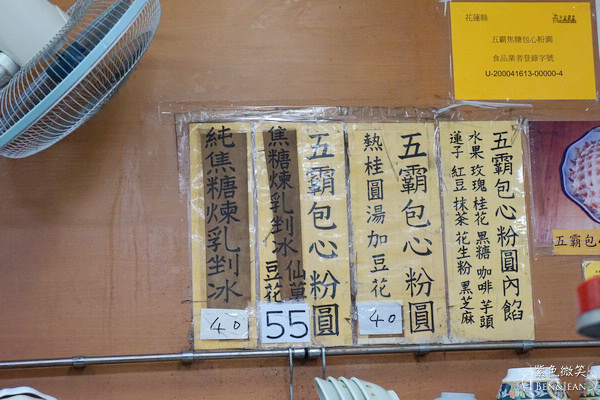 花蓮縣
五霸焦糖包心粉圓
食品業者登錄字號
U-200041613-00000-4
五霸包心粉圓內餡
水果 玫瑰 桂花 黑糖 咖啡 芋頭
蓮子 紅豆 抹茶 花生粉 黑芝麻
五霸包心粉圓
熱桂圓湯加豆花
40
五霸包心粉圓
焦糖煉乳剉冰 仙草
豆花
55
純焦糖煉乳剉冰
40
五霸包
紫色微笑
BEN&JEAN